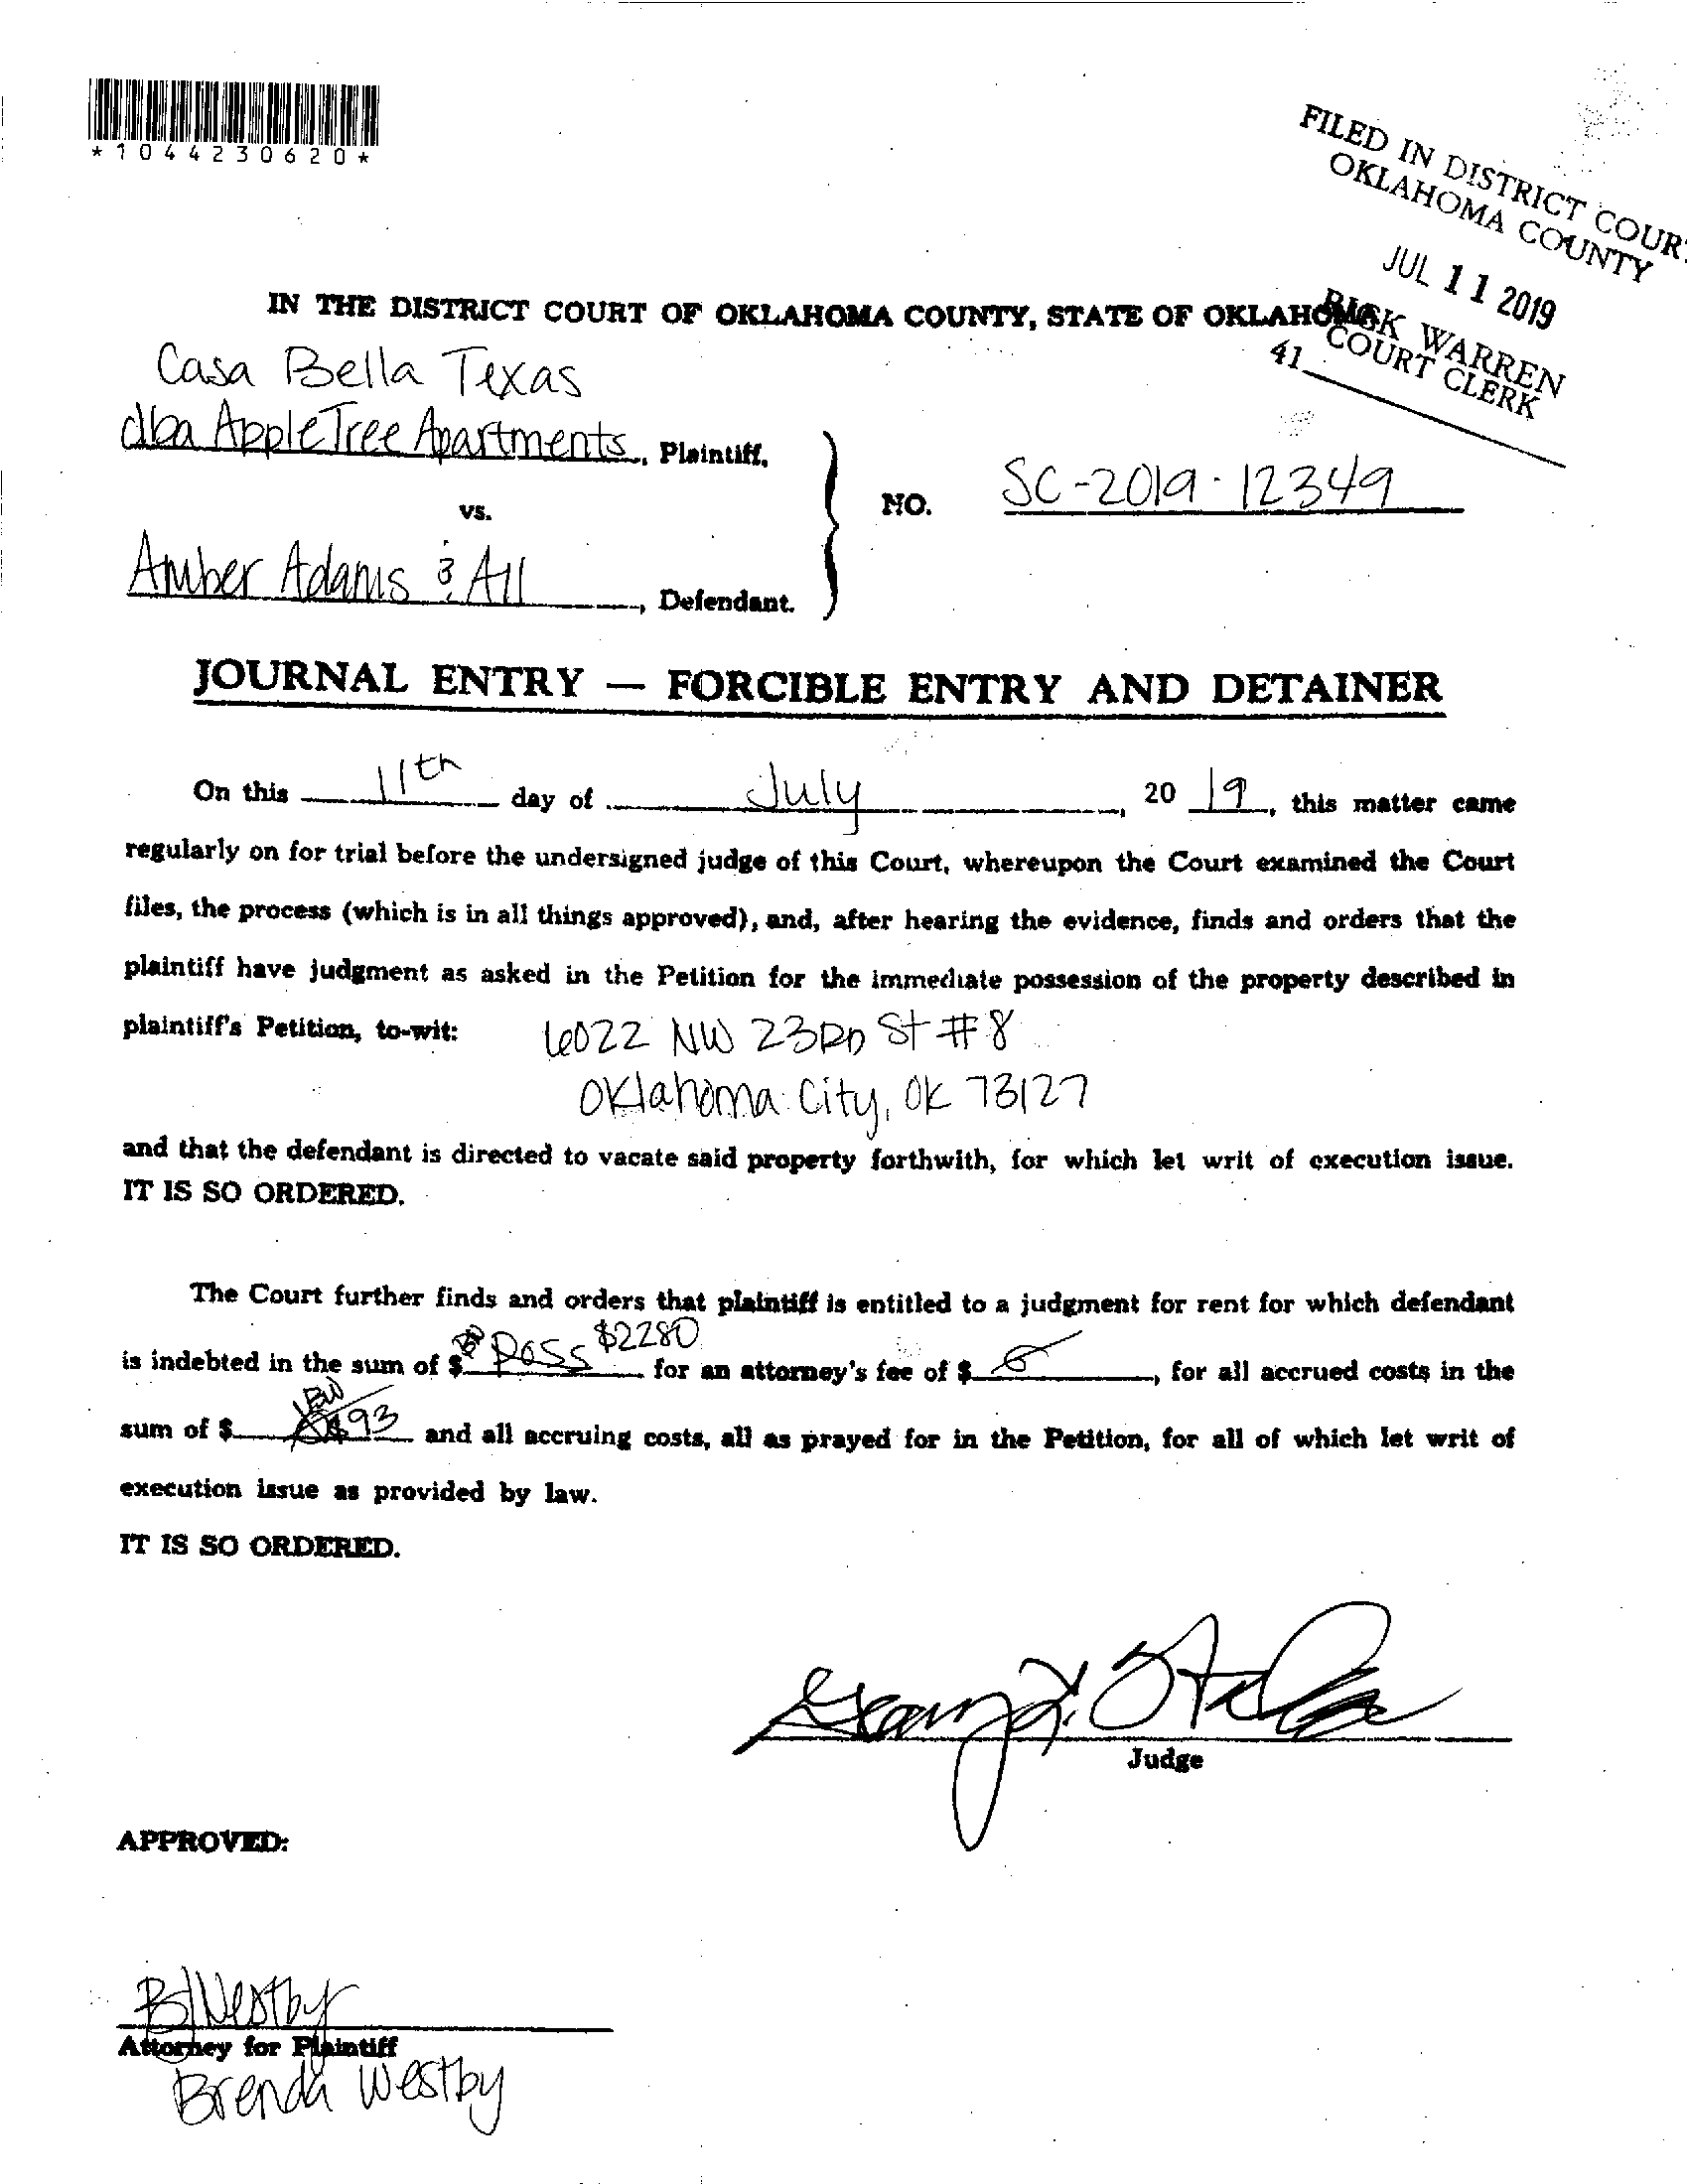 *1044230620*
FILED IN DISTRICT COUR
OKLAHOMA COUNTY
JUL 11 2019
RICK WARREN
COURT CLERK
41
IN THE DISTRICT COURT OF OKLAHOMA COUNTY, STATE OF OKLAHOMA
Casa Bella Texas
dba AppleTree Apartments, Plaintiff,
vs.
NO. SC-2019-12349
Amber Adams & All, Defendant.
JOURNAL ENTRY — FORCIBLE ENTRY AND DETAINER
On this 11th day of July, 20 19, this matter came
regularly on for trial before the undersigned judge of this Court, whereupon the Court examined the Court
files, the process (which is in all things approved), and, after hearing the evidence, finds and orders that the
plaintiff have judgment as asked in the Petition for the immediate possession of the property described in
plaintiff's Petition, to-wit: 6022 NW 23RD St #8
Oklahoma City, OK 73127
and that the defendant is directed to vacate said property forthwith, for which let writ of execution issue.
IT IS SO ORDERED.
The Court further finds and orders that plaintiff is entitled to a judgment for rent for which defendant
is indebted in the sum of $ Poss $2280 for an attorney's fee of $, for all accrued costs in the
sum of $ 93 and all accruing costs, all as prayed for in the Petition, for all of which let writ of
execution issue as provided by law.
IT IS SO ORDERED.
Judge
APPROVED:
B Westby
Attorney for Plaintiff
Brenda Westby